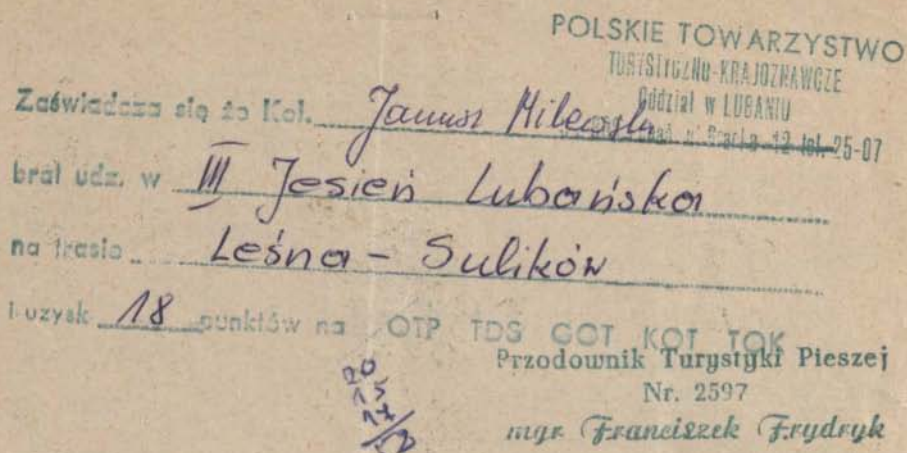 POLSKIE TOWARZYSTWO
TURYSTYCZNO-KRAJOZNAWCZE
Oddział w LUBANIU
12 tel. 25-07
Zaświadcza się że Kol. Janusz
brał udz. w III Jesień Lubańska
na trasie Leśna - Sulików
i uzysk 18 punktów na OTP TDS GOT KOT TOK
Przodownik Turystyki Pieszej
Nr. 2597
mgr Franciszek Frydryk
20
15